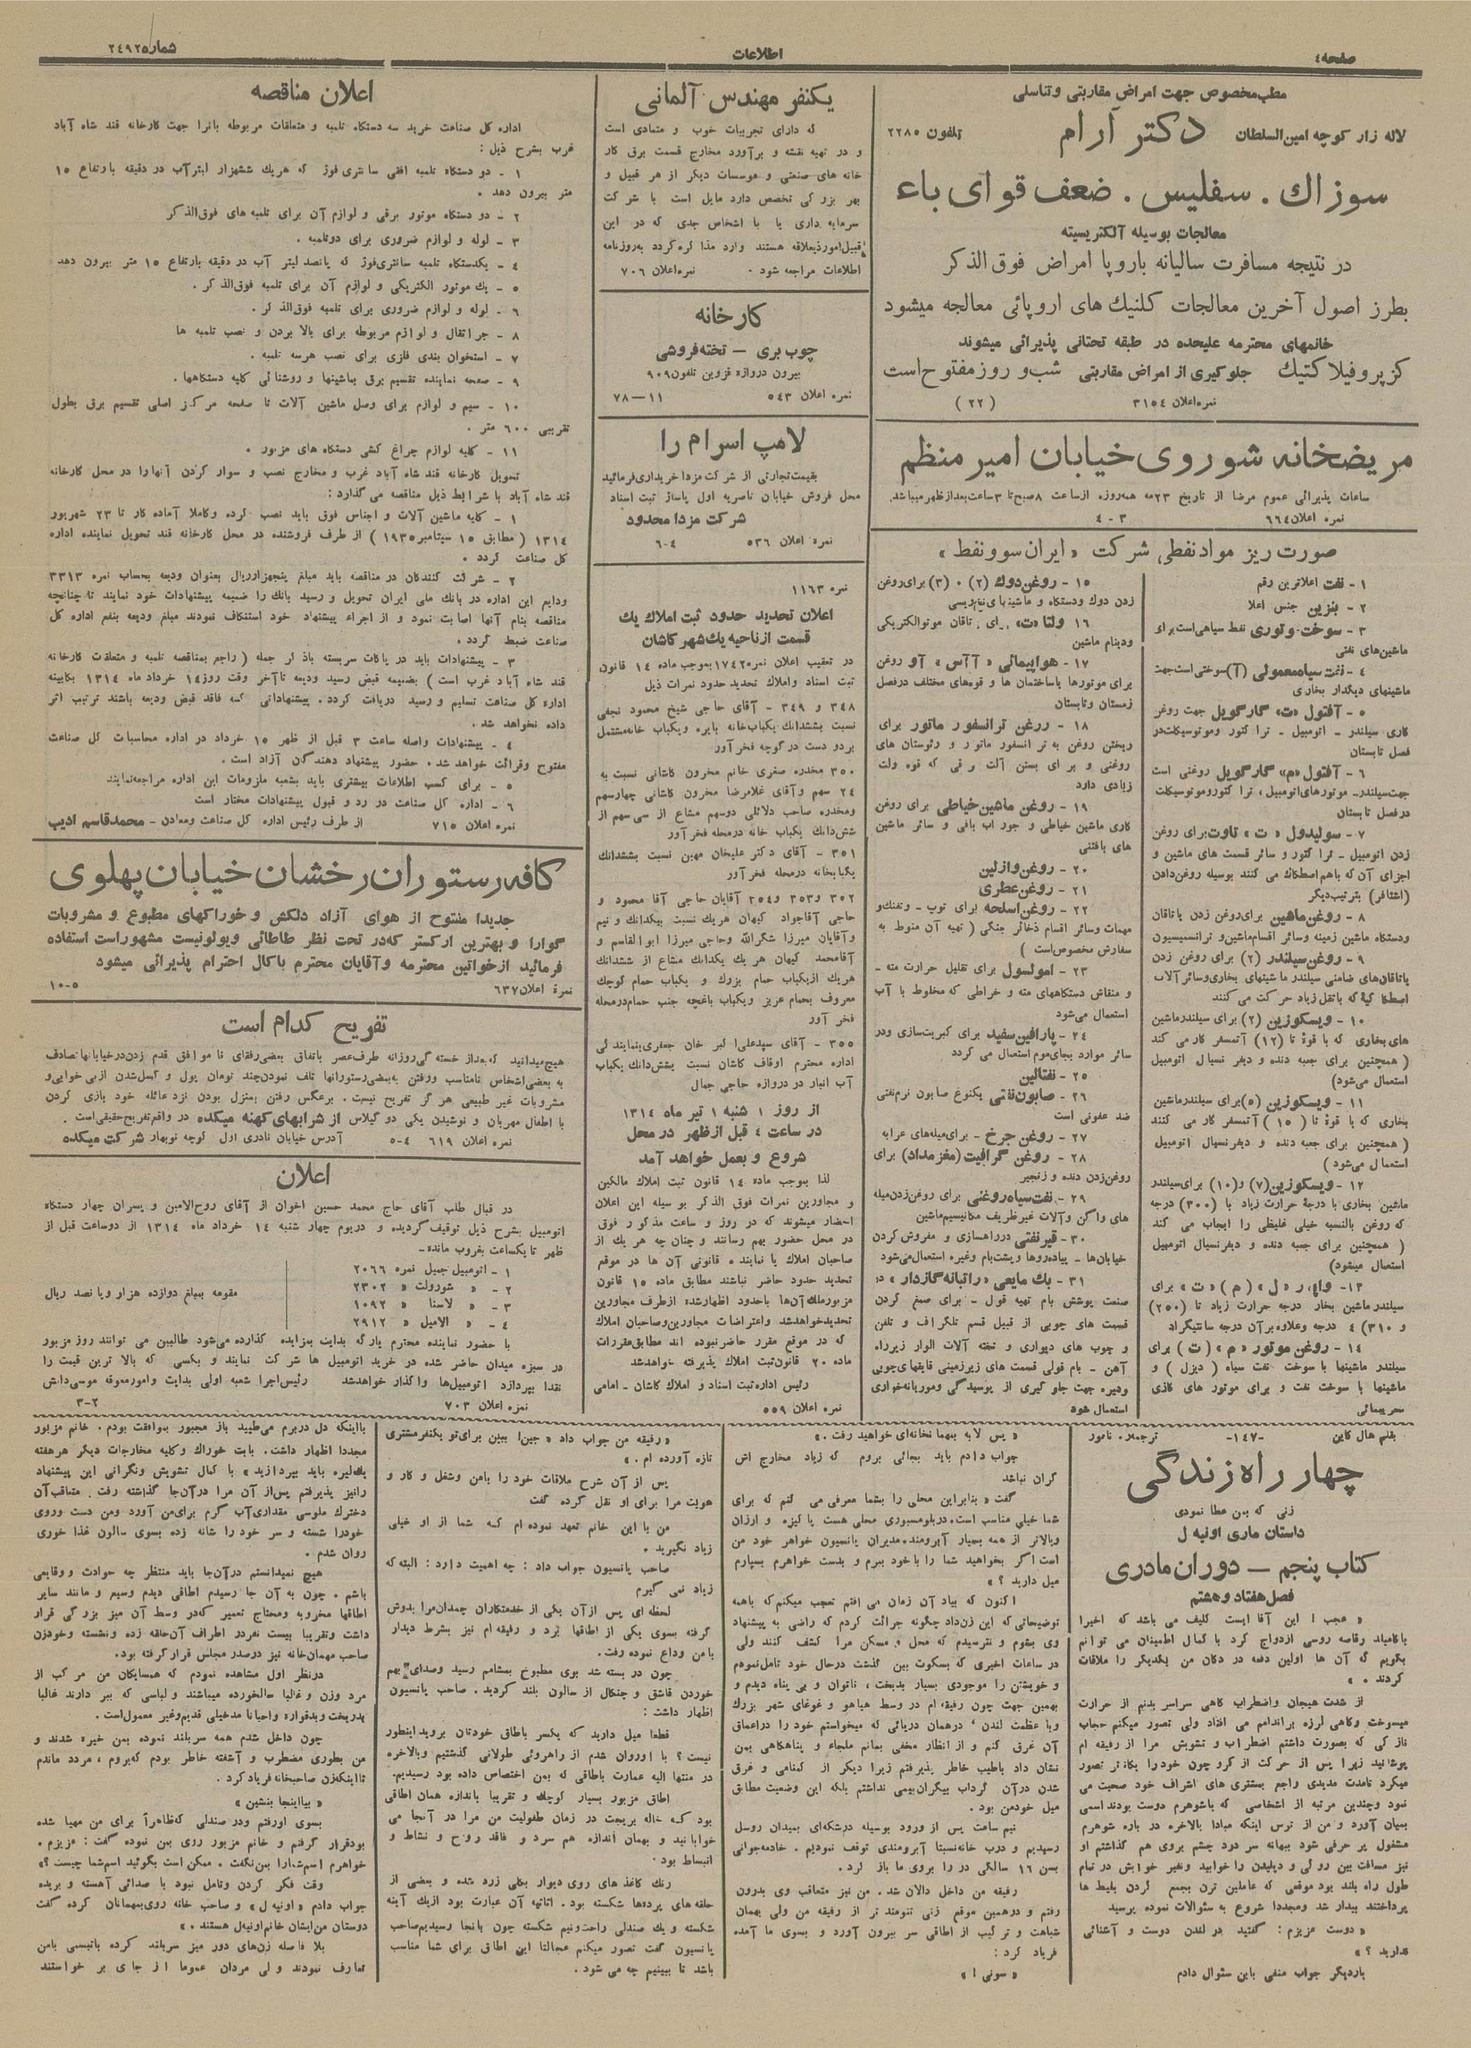 صفحه ٤
اطلاعات
شماره ٢٤٩٢
مطب مخصوص جهت امراض مقاربتی و تناسلی
لاله زار کوچه امین السلطان دکتر آرام تلفون ٢٢٨٥
سوزاك . سفلیس . ضعف قوای باء
معالجات بوسیله آلکتریسیته
در نتیجه مسافرت سالیانه باروپا امراض فوق الذکر
بطرز اصول آخرین معالجات کلنیك های اروپائی معالجه میشود
خانمهای محترمه علیحده در طبقه تحتانی پذیرائی میشوند
کزپروفیلاکتیك جلوگیری از امراض مقاربتی شب و روز مفتوح است
نمره اعلان ٣١٥٤ (٢٢)
مریضخانه شوروی خیابان امیر منظم
ساعات پذیرائی عموم مرضا از تاریخ ٢٣ مه همه روزه از ساعت ٨ صبح تا ٣ ساعت بعد از ظهر میباشد.
نمره اعلان ٦٦٤ ٣-٤
صورت ریز مواد نفطی شرکت «ایران سوو نفط»
١ - نفت اعلاترین رقم
٢ - بنزین جنس اعلا
٣ - سوخت وتوری نفط سیاهی است برای
ماشین‌های نفتی
٤ - نفت سیاه معمولی (آ) سوختی است جهت
ماشینهای دیگدار بخاری
٥ - آفتول «ت» گارگویل جهت روغن
کاری سیلندر - اتومبیل - تراکتور وموتوسیکلت در
فصل تابستان
٦ - آفتول «م» گارگویل روغنی است
جهت سیلندر- موتورهای اتومبیل، تراکتور وموتوسیکلت
در فصل تابستان
٧ - سولیدول «ت» تاوت برای روغن
زدن اتومبیل - تراکتور و سائر قسمت های ماشین و
اجزای آن که باهم اصطکاك می کنند بوسیله روغن دادن
(اشتافر) بترتیب دیگر
٨ - روغن ماشین برای روغن زدن یاتاقان
ودستگاه ماشین زمینه وسائر اقسام ماشین و ترانسمیسیون
٩ - روغن سیلندر (٢) برای روغن زدن
یاتاقان‌های ضامنی سیلندر ماشینهای بخاری وسائر آلات
اصطکاکیة که باتقل زیاد حرکت می کنند
١٠ - ویسکوزین (٢) برای سیلندر ماشین
های بخاری که با قوة تا (١٢) آتمسفر کار می کند
( همچنین برای جعبه دنده و دیفر نسیال اتومبیل
استعمال می‌شود)
١١ - ویسکوزین (٥) برای سیلندر ماشین
بخاری که با قوة تا ( ١٥ ) آتمسفر کار می کنند
( همچنین برای جعبه دنده و دیفرنسیال اتومبیل
استعمال می‌شود )
١٢ - ویسکوزین (٧) و (١٠) برای سیلندر
ماشین بخاری با درجهٔ حرارت زیاد با (٣٠٠) درجه
که روغن بالنسبه خیلی غلیظی را ایجاب می کند
( همچنین برای جعبه دنده و دیفرنسیال اتومبیل
استعمال میشود)
١٣ - واپر «ل» ( م ) «ت» برای
سیلندر ماشین بخار درجه حرارت زیاد تا (٢٥٠)
و ٣١٠) درجه وعلاوه بر آن درجه سانتیگراد
١٤ - روغن موتور «م» ( ت ) برای
سیلندر ماشینها با سوخت نفت سیاه ( دیزل ) و
ماشینها با سوخت نفت و برای موتور های گازی
١٥ - روغن دوك (٢) ٠ (٣) برای روغن
زدن دوك ودستگاه و ماشینهای نخ‌ریسی
١٦ - ولتا «ت» برای یاتاقان موتوالکتریکی
ودینام ماشین
١٧ - هواپیمائی «آآس» آو روغن
برای موتورها باساختمان ها و قوه‌های مختلف در فصل
زمستان وتابستان
١٨ - روغن ترانسفور ماتور برای
ریختن روغن به ترانسفور ماتور و رئوستان های
روغنی و برای بستن آلت برقی که قوه ولت
زیادی دارد
١٩ - روغن ماشین خیاطی برای روغن
کاری ماشین خیاطی و جوراب بافی و سائر ماشین
های بافتنی
٢٠ - روغن وازلین
٢١ - روغن عطری
٢٢ - روغن اسلحه برای توپ - وتفنگ و
مهمات وسائر اقسام ذخائر جنگی ( تهیه آن منوط به
سفارش مخصوص است )
٢٣ - امولسول برای تقلیل حرارت مته -
و منقاش دستگاههای مته و خراطی که مخلوط با آب
استعمال می‌شود
٢٤ - پارافین سفید برای کبریت‌سازی ودر
سائر موارد بجای موم استعمال می گردد
٢٥ - نفتالین
٢٦ - صابون نفتی یکنوع صابون نرم نفتی
ضد عفونی است
٢٧ - روغن چرخ - برای میله‌های عرابه
٢٨ - روغن گرافیت (مغز مداد) برای
روغن زدن دنده و زنجیر
٢٩ - نفت سیاه روغنی برای روغن زدن میله
های واگن و آلات غیر ظریف مکانیسم ماشین
٣٠ - قیر نفتی در راهسازی و مفروش کردن
خیابان‌ها - پیاده‌روها و پشت‌بام وغیره استعمال می‌شود
٣١ - بك مایعی «راتبانه گازدار» در
صنعت پوشش بام تهیه قول - برای صمغ کردن
قسمت های چوبی از قبیل قسم تلگراف و تلفن
و چوب های دیواری و تخته آلات الوار زیر راه
آهن - بام قولی قسمت های زیرزمینی قایقهای چوبی
وغیره جهت جلوگیری از پوسیدگی وموریانه‌خواری
استعمال شود
یکنفر مهندس آلمانی
که دارای تجربیات خوب و متمادی است
و در تهیه نقشه و برآورد مخارج قسمت برق کار
خانه های صنعتی و موسسات دیگر از هر قبیل و
بهر بزرگی تخصص دارد مایل است با شرکت
سرمایه داری یا با اشخاص جدی که در این
قبیل امور ذیعلاقه هستند وارد مذاکره گردد به روزنامه
اطلاعات مراجعه شود . نمره اعلان ٧٠٦
کارخانه
چوب بری - تخته فروشی
بیرون دروازه قزوین تلفون ٩٠٩
نمره اعلان ٥٤٣ ١١-٧٨
لامپ اسرام را
بقیمت تجارتی از شرکت مزدا خریداری فرمائید
محل فروش خیابان ناصریه اول پاساژ ثبت اسناد
شرکت مزدا محدود
نمره اعلان ٥٣٦ ٤-٦
نمره ١١٦٣
اعلان تحدید حدود ثبت املاك یك
قسمت از ناحیه یك شهر کاشان
در تعقیب اعلان نمره ١٧٤٢٠ بموجب ماده ١٤ قانون
ثبت اسناد واملاك تحدید حدود نمرات ذیل
٣٤٨ و ٣٤٩ - آقای حاجی شیخ محمود نجفی
نسبت بششدانك یکباب خانه بایره ویکباب خانه مشتمل
بردو دست در کوچه فخر آور
٣٥٠ مخدره صغری خانم مخرون کاشانی نسبت به
٢٤ سهم وآقای غلامرضا مخرون کاشانی چهار سهم
ومخدره صاحب دلائلی دوسهم مشاع از سی سهم از
شش دانك یکباب خانه در محله فخر آور
٣٥١ - آقای دکتر علیخان مهین نسبت بششدانك
یکباب خانه در محله فخر آور
٣٥٢ و٣٥٣ و٢٥٤ آقایان حاجی آقا محمود و
حاجی آقا جواد کیهان هریك نسبت بیکدانك و نیم
وآقایان میرزا شکرالله وحاجی میرزا ابوالقاسم و
آقا محمد کیهان هریك یکدانك مشاع از ششدانك
هریك از یکباب حمام بزرك و یکباب حمام کوچك
معروف بحمام عزیز ویکباب باغچه جنب حمام در محله
فخر آور
٣٥٥ - آقای سید علی اکبر خان جعفری بنمایندگی
اداره محترم اوقاف کاشان نسبت بشش دانك یکباب
آب انبار در دروازه حاجی جمال
از روز ١ شنبه ١ تیر ماه ١٣١٤
در ساعت ٤ قبل از ظهر در محل
شروع و بعمل خواهد آمد
لذا بموجب ماده ١٤ قانون ثبت املاك مالکین
و مجاورین نمرات فوق الذکر بوسیله این اعلان
احضار میشوند که در روز و ساعت مذکور فوق
در محل حضور بهم رسانند و چنان چه هریك از
صاحبان املاك یا نماینده قانونی آن ها در موقع
تحدید حدود حاضر نباشند مطابق ماده ١٥ قانون
مزبور ملك آن‌ها با حدود اظهار شده از طرف مجاورین
تحدید خواهد شد واعتراضات مجاورین وصاحبان املاك
که در موقع مقرر حاضر نبوده اند مطابق مقررات
ماده ٢٠ قانون ثبت املاك پذیرفته خواهد شد
رئیس اداره ثبت اسناد و املاك کاشان - امامی
نمره اعلان ٥٥٩
اعلان مناقصه
اداره کل صناعت خرید سه دستگاه تلمبه و متعلقات مربوطه بآنرا جهت کارخانه قند شاه آباد
غرب بشرح ذیل :
١ - دو دستگاه تلمبه افقی سانتری فوژ که هریك ششهزار لیتر آب در دقیقه بارتفاع ١٥
متر بیرون دهد .
٢ - دو دستگاه موتور برقی و لوازم آن برای تلمبه های فوق الذکر
٣ - لوله و لوازم ضروری برای دو تلمبه .
٤ - یکدستگاه تلمبه سانتری فوژ که پانصد لیتر آب در دقیقه بارتفاع ١٥ متر بیرون دهد
٥ - یك موتور الکتریکی و لوازم آن برای تلمبه فوق الذکر .
٦ - لوله و لوازم ضروری برای تلمبه فوق الذکر .
٨ - جراثقال و لوازم مربوطه برای بالا بردن و نصب تلمبه ها
٧ - استخوان بندی فلزی برای نصب هر سه تلمبه .
٩ - صفحه نماینده تقسیم برق بماشینها و روشنائی کلیه دستگاهها.
١٠ - سیم و لوازم برای وصل ماشین آلات تا صفحه مرکز اصلی تقسیم برق بطول
تقریبی ٦٠٠ متر .
١١ - کلیه لوازم چراغ کشی دستگاه های مزبور .
تحویل کارخانه قند شاه آباد غرب و مخارج نصب و سوار کردن آنها را در محل کارخانه
قند شاه آباد با شرایط ذیل مناقصه می گذارد :
١ - کلیه ماشین آلات و اجناس فوق باید نصب کرده وکاملا آماده کار تا ٢٣ شهریور
١٣١٤ ( مطابق ١٥ سپتامبر ١٩٣٥ ) از طرف فروشنده در محل کارخانه قند تحویل نماینده اداره
کل صناعت گردد .
٢ - شرکت کنندگان در مناقصه باید مبلغ پنجهزار ریال بعنوان ودیعه بحساب نمره ٣٣١٣
ودایع این اداره در بانك ملی ایران تحویل و رسید بانك را ضمیمه پیشنهادات خود نمایند تا چنانچه
مناقصه بنام آنها اصابت نمود و از اجراء پیشنهاد خود استنکاف نمودند مبلغ ودیعه بنفع اداره کل
صناعت ضبط گردد .
٣ - پیشنهادات باید در پاکات سربسته با ذکر جمله ( راجع بمناقصه تلمبه و متعلقات کارخانه
قند شاه آباد غرب است ) بضمیمه قبض رسید ودیعه تا آخر وقت روز ١٤ خرداد ماه ١٣١٤ بکابینه
اداره کل صناعت تسلیم و رسید دریافت گردد. پیشنهاداتی که فاقد قبض ودیعه باشند ترتیب اثر
داده نخواهد شد .
٤ - پیشنهادات واصله ساعت ٣ قبل از ظهر ١٥ خرداد در اداره محاسبات کل صناعت
مفتوح وقرائت خواهد شد . حضور پیشنهاد دهندگان آزاد است .
٥ - برای کسب اطلاعات بیشتری باید بشعبه ملزومات این اداره مراجعه نمایند
٦ - اداره کل صناعت در رد و قبول پیشنهادات مختار است
نمره اعلان ٧١٥ از طرف رئیس اداره کل صناعت ومعادن - محمد قاسم ادیب
کافه رستوران رخشان خیابان پهلوی
جدیدا مفتوح از هوای آزاد دلکش و خوراکهای مطبوع و مشروبات
گوارا و بهترین ارکستر که در تحت نظر طاطائی ویولونیست مشهور است استفاده
فرمائید از خواتین محترمه وآقایان محترم با کمال احترام پذیرائی میشود
نمرة اعلان ٦٣٧ ٥-١٠
تفریح کدام است
هیچ میدانید که بعد از خستگی روزانه طرف عصر باتفاق بعضی رفقای ناموافق قدم زدن در خیابانها تصادف
به بعضی اشخاص نامناسب ورفتن به بعضی رستورانها تلف نمودن چند تومان پول و کسل شدن از بی خوابی و
مشروبات غیر طبیعی هرگز تفریح نیست. برعکس رفتن بمنزل بودن نزد عائله خود بازی کردن
با اطفال مهربان و نوشیدن یکی دو گیلاس از شرابهای کهنه میکده در واقع تفریح حقیقی است .
نمره اعلان ٦١٩ ٤-٥ آدرس خیابان نادری اول کوچه نوبهار شرکت میکده
اعلان
در قبال طلب آقای حاج محمد حسین اخوان از آقای روح‌الامین و پسران چهار دستگاه
اتومبیل بشرح ذیل توقیف گردیده و در یوم چهار شنبه ١٤ خرداد ماه ١٣١٤ از دو ساعت قبل از
ظهر تا یکساعت بغروب مانده -
١ - اتومبیل جمیل نمره ٢٠٦٦
٢ - » شورولت » ٢٣٠٢
٣ - » لاسنا » ١٠٩٢
٤ - » الامیل » ٢٩١٢
مقومه بمبلغ دوازده هزار و پانصد ریال
با حضور نماینده محترم پارکه بدایت بمزایده گذارده می‌شود طالبین می توانند روز مزبور
در سبزه میدان حاضر شده در خرید اتومبیل ها شرکت نمایند و بکسی که بالا ترین قیمت را
نقدا بپردازد اتومبیل‌ها واگذار خواهد شد رئیس اجرا شعبه اولی بدایت وامور معوقه موسی دانش
نمره اعلان ٧٠٣ ٢-٣
بقلم هال کاین -١٤٧- ترجمه د. نامور
چهار راه زندگی
زنی که بمن عطا نمودی
داستان ماری اونیه ل
کتاب پنجم - دوران مادری
فصل هفتاد و هشتم
« عجب ! این آقا ایست کلیف می باشد که اخیرا
با کامیلد رقاصه روسی ازدواج کرد با کمال اطمینان می توانم
بگویم که آن ها اولین دفعه در دکان من یکدیگر را ملاقات
کردند . »
از شدت هیجان واضطراب گاهی سراسر بدنم از حرارت
میسوخت وگاهی لرزه براندامم می افتاد ولی تصور میکنم حجاب
نازکی که بصورت داشتم اضطراب و تشویش مرا از رفیقه ام
پوشانید زیرا پس از حرکت از کرو چون خود را یکتا تر تصور
میکرد تامدت مدیدی راجع بمشتری های اشراف خود صحبت می
نمود وچندین مرتبه از اشخاصی که باشوهرم دوست بودند اسمی
بمیان آورد و من از ترس اینکه مبادا بالاخره در باره شوهرم
مشغول پر حرفی شود ببهانه سر درد چشم برروی هم گذاشتم او
نیز مسافت بین روکی و دپلیدن را خوابید ونفیر خوابش در تمام
طول راه بلند بود موقعی که عاملین ترن بجمع کردن بلیط ها
پرداختند بیدار شد ومجددا شروع به سئوالات نموده پرسید
« دوست عزیزم : گفتید در لندن دوست و آشنائی
ندارید ؟ »
باردیگر جواب منفی باین سئوال دادم
« پس لابد بمهمانخانه‌ای خواهید رفت . »
جواب دادم باید بجائی بروم که زیاد مخارج اش
گران نباشد
گفت « بنابراین محلی را بشما معرفی می کنم که برای
شما خیلی مناسب است. در بلومسبوری محلی هست پاکیزه و ارزان
وبالاتر از همه بسیار آبرومند. مدیران پانسیون خواهر خود من
است اگر بخواهید شما را با خود ببرم و بدست خواهرم بسپارم
میل دارید ؟ »
اکنون که بیاد آن زمان می افتم تعجب میکنم که باهمه
توضیحاتی که این زن داد چگونه جرائت کردم که راضی به پیشنهاد
وی بشوم و نترسیدم که محل و مسکن مرا کشف کنند ولی
در ساعات اخیری که بسکوت بین گذشت در حال خود تامل نمودم
و خویشتن را موجودی بسیار بدبخت ، ناتوان و بی پناه دیدم و
بهمین جهت چون رفیقه ام در وسط هیاهو و غوغای شهر بزرك
وبا عظمت لندن ، در همان دریائی که میخواستم خود را در اعماق
آن غرق کنم و از انظار مخفی بمانم ملجاء و پناهگاهی بمن
نشان داد باطیب خاطر پذیرفتم زیرا دیگر از گمنامی و غرق
شدن در آن گرداب بیکران بیمی نداشتم بلکه این وضعیت مطابق
میل خودمن بود .
نیم ساعت پس از ورود بوسیله درشکه‌ای بمیدان روسل
رسیدیم و درب خانه نسبتا آبرومندی توقف نمودیم . خادمه جوانی
بسن ١٦ سالگی در را بروی ما باز کرد .
رفیقه من داخل دالان شد . من نیز متعاقب وی بدرون
رفتم و در همین موقع زنی تنومند تر از رفیقه من ولی بهمان
شباهت و ترکیب از اطاقی سر بیرون آورد و بسوی ما آمده
فریاد کرد :
« سونی ! »
« رفیقه من جواب داد « جین! ببین برای تو یکنفر مشتری
تازه آورده ام . »
پس از آن شرح ملاقات خود را بامن وشغل و کار و
هویت مرا برای او نقل کرده گفت
من با این خانم تعهد نموده ام که شما از او خیلی
زیاد نگیرید .
صاحب پانسیون جواب داد : چه اهمیت دارد : البته که
زیاد نمی گیرم
لحظه ای پس از آن یکی از خدمتکاران چمدان مرا بدوش
گرفته بسوی یکی از اطاقها برد و رفیقه ام نیز بشرط دیدار
بامن وداع نموده رفت.
چون در بسته شد بوی مطبوخ بمشامم رسید وصدای بهم
خوردن قاشق و چنگال از سالون بلند گردید . صاحب پانسیون
اظهار داشت :
قطعا میل دارید که یکسر باطاق خودتان بروید اینطور
نیست ؟ با او روان شدم از راهروئی طولانی گذشتیم وبالاخره
در منتها الیه عمارت باطاقی که بمن اختصاص داده بود رسیدیم.
اطاق مزبور بسیار کوچك و تقریبا باندازه همان اطاقی
بود که خاله بریجت در زمان طفولیت من مرا در آنجا می
خوابانید و بهمان اندازه هم سرد و فاقد روح و نشاط و
انبساط بود .
رنك کاغذ های روی دیوار بکلی زرد شده و بعضی از
حلقه های پرده‌ها شکسته بود . اثاثیه آن عبارت بود از یك آینه
شکسته و یك صندلی راحت و نیم شکسته چون بآنجا رسیدیم صاحب
پانسیون گفت تصور میکنم عجالتا این اطاق برای شما مناسب
باشد تا ببینیم چه می شود .
با اینکه دل دربرم می‌طپید باز مجبور بموافقت بودم . خانم مزبور
مجددا اظهار داشت . بابت خوراك وکلیه مخارجات دیگر هر هفته
یك لیره باید بپردازید » با کمال تشویش ونگرانی این پیشنهاد
را نیز پذیرفتم پس از آن مرا در آن جا گذاشته رفت . متعاقب آن
دخترك ملوسی مقداری آب گرم برای من آورد ومن دست وروی
خود را شسته و سر خود را شانه زده بسوی سالون غذا خوری
روان شدم .
هیچ نمیدانستم در آن جا باید منتظر چه حوادث و وقایعی
باشم . چون به آن جا رسیدم اطاقی دیدم وسیع و مانند سایر
اطاقها مخروبه ومحتاج تعمیر که در وسط آن میز بزرگی قرار
داشت وتقریبا بیست نفر در اطراف آن حلقه زده و نشسته و خود زن
صاحب مهمانخانه نیز در صدر مجلس قرار گرفته بود .
در نظر اول مشاهده نمودم که همسایگان من مرکب از
مرد وزن و غالبا سالخورده میباشند و لباسی که ببر دارند غالبا
پدر یخت وبدقواره واحیانا مدخیلی قدیم وغیر معمول است .
چون داخل شدم همه سر بلند نموده بمن خیره شدند و
من بطوری مضطرب و آشفته خاطر بودم که بروم ، مردد ماندم
تا اینکه زن صاحبخانه فریاد کرد .
« بیا اینجا بنشین »
بسوی او رفتم ودر صندلی که ظاهراً برای من مهیا شده
بود قرار گرفتم و خانم مزبور روی بمن نموده گفت : عزیزم .
خواهرم اسم شما را بمن نگفت . ممکن است بگوئید اسم شما چیست ؟ »
وقت فکر کردن وتامل نبود با صدائی آهسته و بریده
جواب دادم « اونیه ل » و صاحب خانه روی بمهمانان کرده گفت
دوستان من ایشان خانم اونیه‌ل هستند . »
بلا فاصله زن‌های دور میز سر بلند کرده با تبسمی بامن
تعارف نمودند و لی مردان عموما از جای بر خواستند